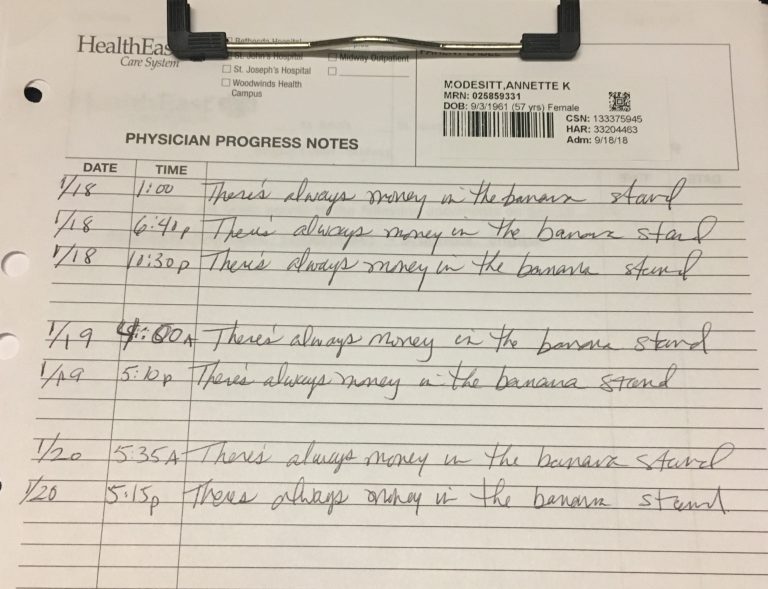 HealthEas
Care System
Bethesda Hospital
St. John's Hospital
St. Joseph's Hospital
Woodwinds Health
Campus
Midway Outpatient
MODESITT,ANNETTE K
MRN: 025859331
DOB: 9/3/1961 (57 yrs) Female
CSN: 133375945
HAR: 33204463
Adm: 9/18/18
PHYSICIAN PROGRESS NOTES
DATE TIME
1/18 1:00 There's always money in the banana stand
1/18 6:40p There's always money in the banana stand
1/18 10:30p There's always money in the banana stand
1/19 4:00A There's always money in the banana stand
1/19 5:10p There's always money in the banana stand
1/20 5:35A There's always money in the banana stand
1/20 5:15p There's always money in the banana stand.